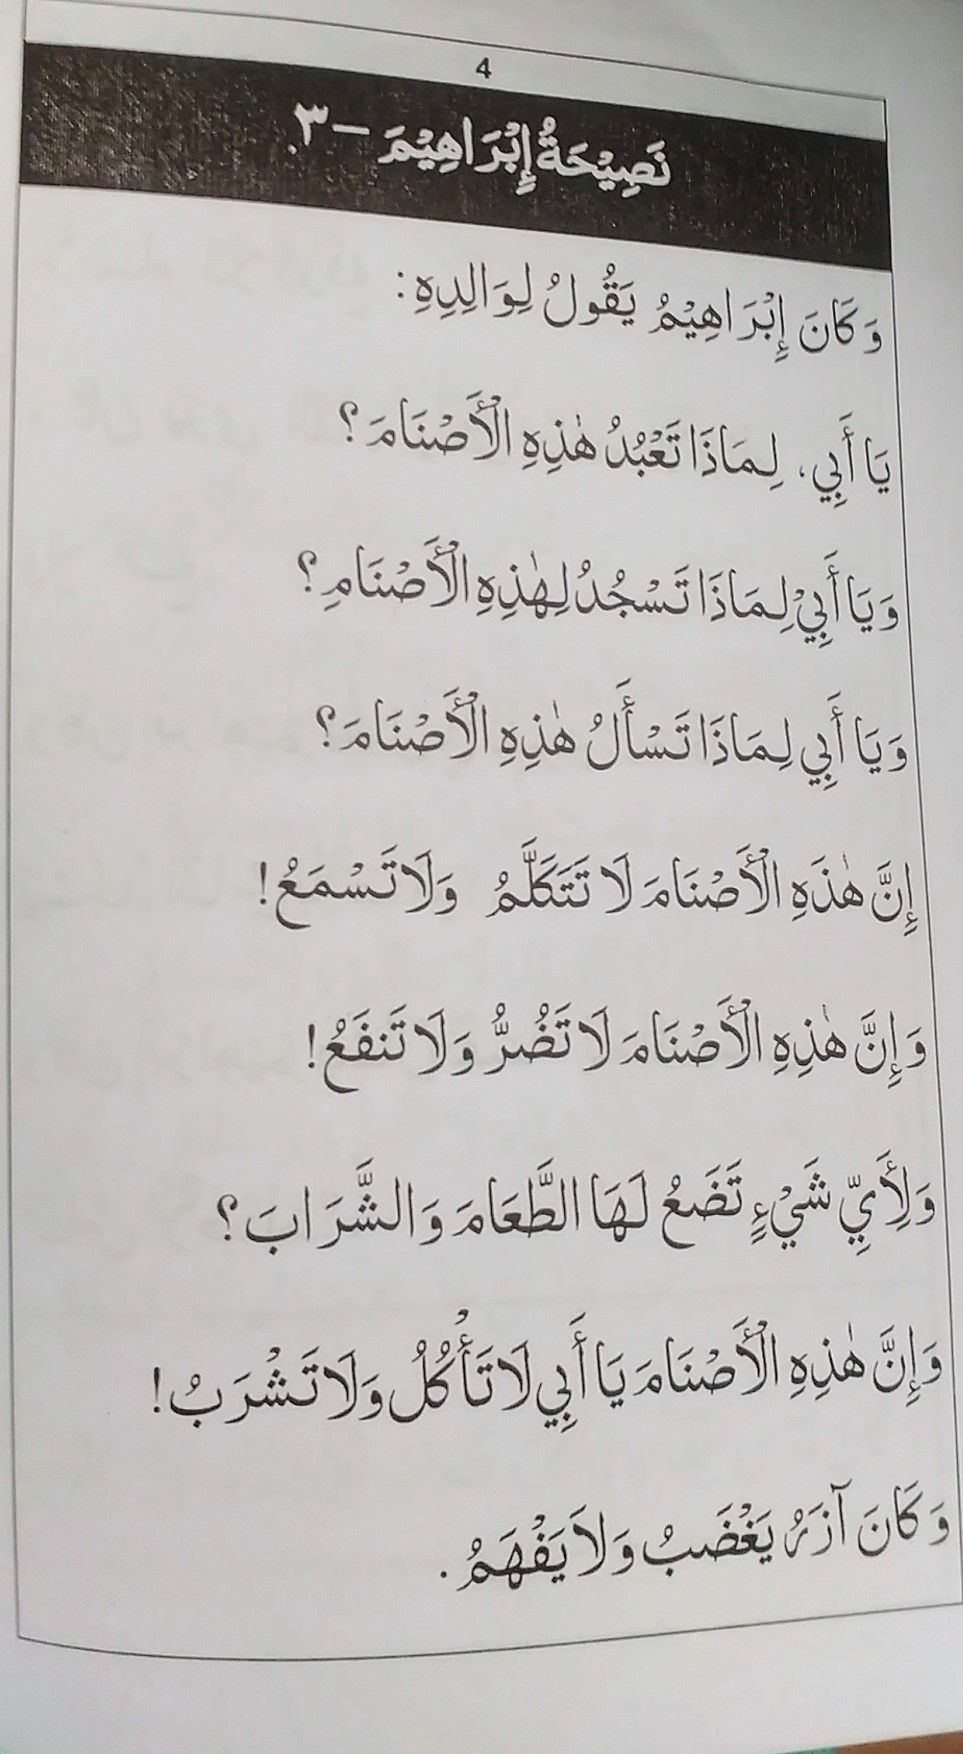 4
نَصِيْحَةُ إِبْرَاهِيْمَ – ٣.
وَكَانَ إِبْرَاهِيْمُ يَقُولُ لِوَالِدِهِ:
يَا أَبِي، لِمَاذَا تَعْبُدُ هٰذِهِ الْأَصْنَامَ؟
وَيَا أَبِيْ لِمَاذَا تَسْجُدُ لِهٰذِهِ الْأَصْنَامِ؟
وَيَا أَبِي لِمَاذَا تَسْأَلُ هٰذِهِ الْأَصْنَامَ؟
إِنَّ هٰذَهِ الْأَصْنَامَ لَا تَتَكَلَّمُ وَلَا تَسْمَعُ!
وَإِنَّ هٰذِهِ الْأَصْنَامَ لَا تَضُرُّ وَلَا تَنفَعُ!
وَلِأَيِّ شَيْءٍ تَضَعُ لَهَا الطَّعَامَ وَالشَّرَابَ؟
وَإِنَّ هٰذِهِ الْأَصْنَامَ يَا أَبِي لَا تَأْكُلُ وَلَا تَشْرَبُ!
وَكَانَ آزَرُ يَغْضَبُ وَلاَ يَفْهَمُ.